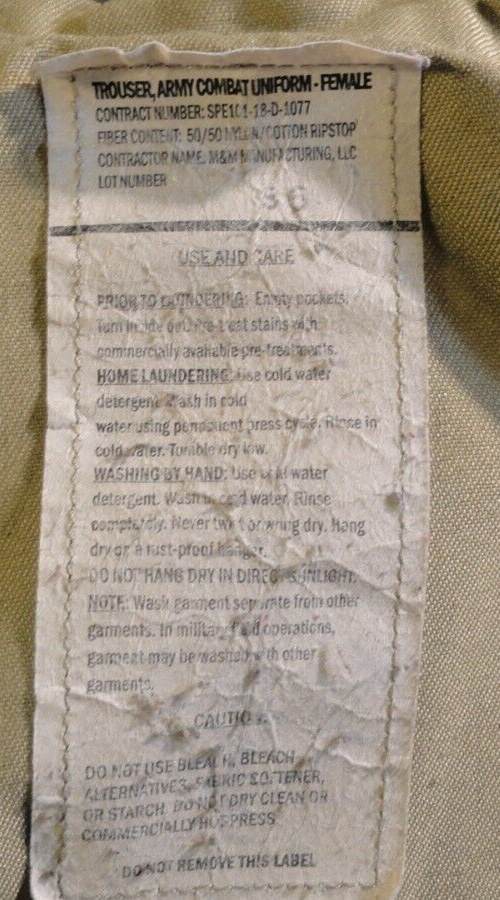 TROUSER, ARMY COMBAT UNIFORM - FEMALE
CONTRACT NUMBER: SPE1C1-18-D-1077
FIBER CONTENT: 50/50 NYLON/COTTON RIPSTOP
CONTRACTOR NAME: M&M MANUFACTURING, LLC
LOT NUMBER
USE AND CARE
PRIOR TO LAUNDERING: Empty pockets.
Turn inside out. Pre-treat stains with
commercially available pre-treatments.
HOME LAUNDERING: Use cold water
detergent. Wash in cold
water using permanent press cycle. Rinse in
cold water. Tumble dry low.
WASHING BY HAND: Use cold water
detergent. Wash in cold water. Rinse
completely. Never twist or wring dry. Hang
dry on a rust-proof hanger.
DO NOT HANG DRY IN DIRECT SUNLIGHT.
NOTE: Wash garment separate from other
garments. In military field operations,
garment may be washed with other
garments.
CAUTION:
DO NOT USE BLEACH, BLEACH
ALTERNATIVES, FABRIC SOFTENER,
OR STARCH. DO NOT DRY CLEAN OR
COMMERCIALLY HOT PRESS.
DO NOT REMOVE THIS LABEL